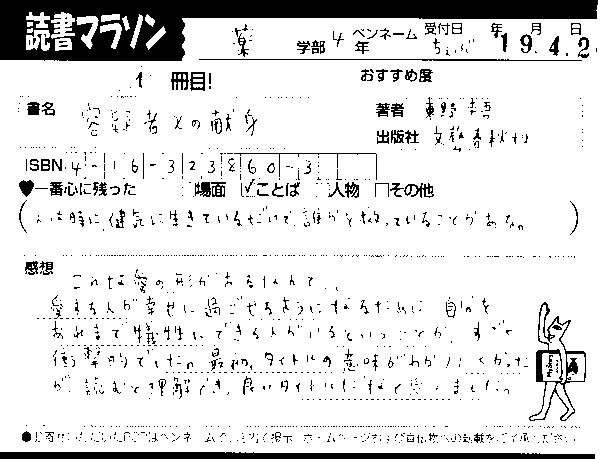 読書マラソン
薬 学部 4 年 ペンネーム ちぇぶ 受付日 年 月 日 19.4.2
1 冊目! おすすめ度
書名 容疑者Xの献身 著者 東野圭吾
出版社 文藝春秋社
ISBN 4-16-323860-3
♥一番心に残った □場面 ☑ことば □人物 □その他
(人は時に、健気に生きているだけで、誰かを救っていることがある。)
感想 こんな愛の形があるなんて、、
愛する人が幸せに過ごせるようになるために、自分を
あれまで犠牲にできる人がいるということが、すごく
衝撃的でした。最初、タイトルの意味がわかりにくかった
が、読むと理解でき、良いタイトルだなと思いました。